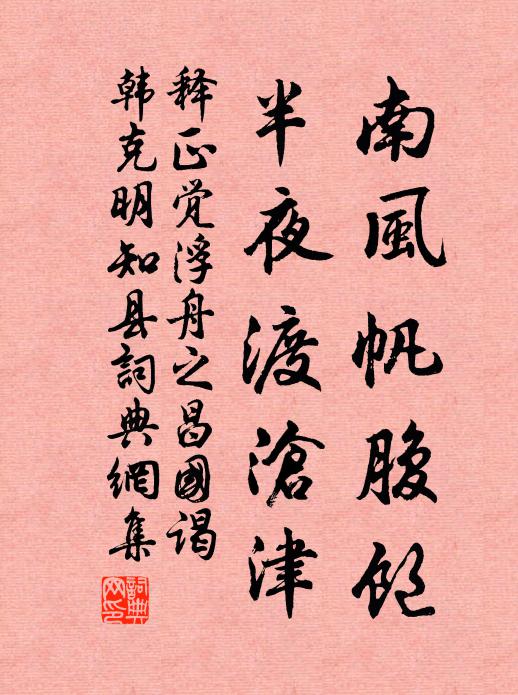 南風帆腹飽
半夜渡滄津
释正觉浮舟之昌國谒
韩克明知县詞典網集
詞典网印